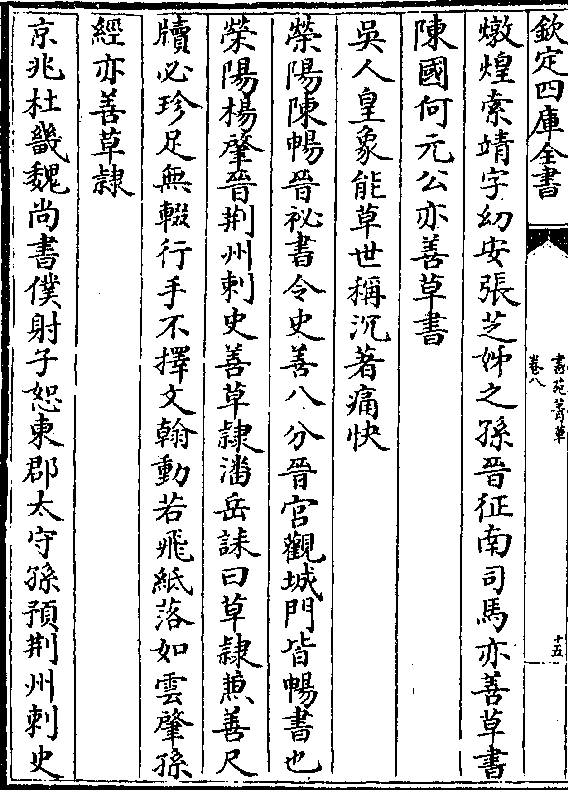 欽定四庫全書
書苑菁華
卷八
十五
燉煌索靖字幼安張芝姊之孫晉征南司馬亦善草書
陳國何元公亦善草書
吳人皇象能草世稱沉著痛快
滎陽陳暢晉祕書令史善八分晉宮觀城門皆暢書也
滎陽楊肇晉荆州刺史善草隸潘岳誄曰草隸兼善尺
牘必珍足無輟行手不擇文翰動若飛紙落如雲肇孫
經亦善草隸
京兆杜畿魏尚書僕射子恕東郡太守孫預荆州刺史